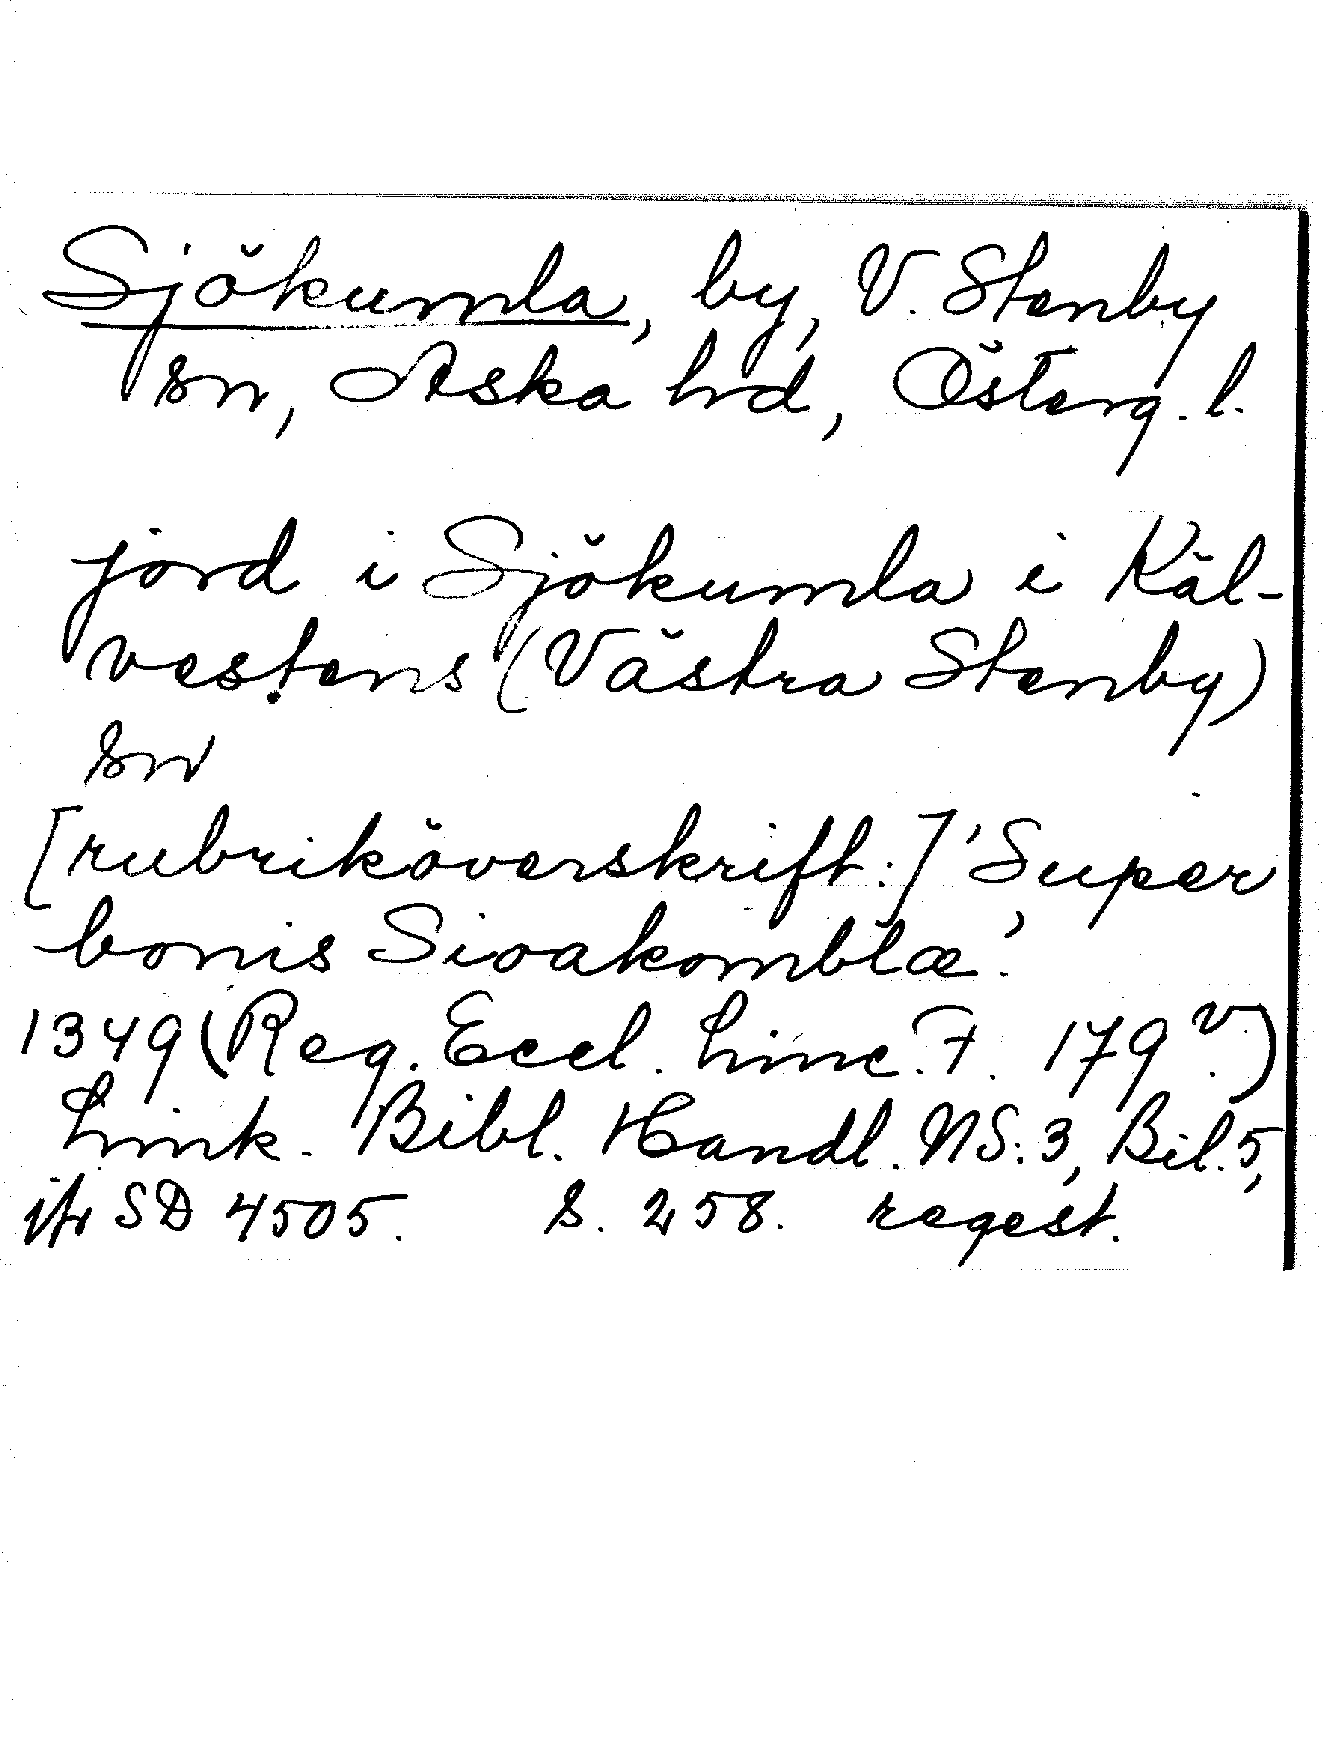 Sjökumla, by, V. Stenby
sn, Aska hd, Österg. l.
jord i Sjökumla i Käl-
vestens (Västra Stenby)
sn
[rubriköverskrift:] 'Super
bonis Sioakomblæ'.
1349 (Reg. Eccl. Linc. F. 179 v.)
Link. Bibl. Handl. NS: 3, Bil. 5,
jfr SD 4505. s. 258. regest.